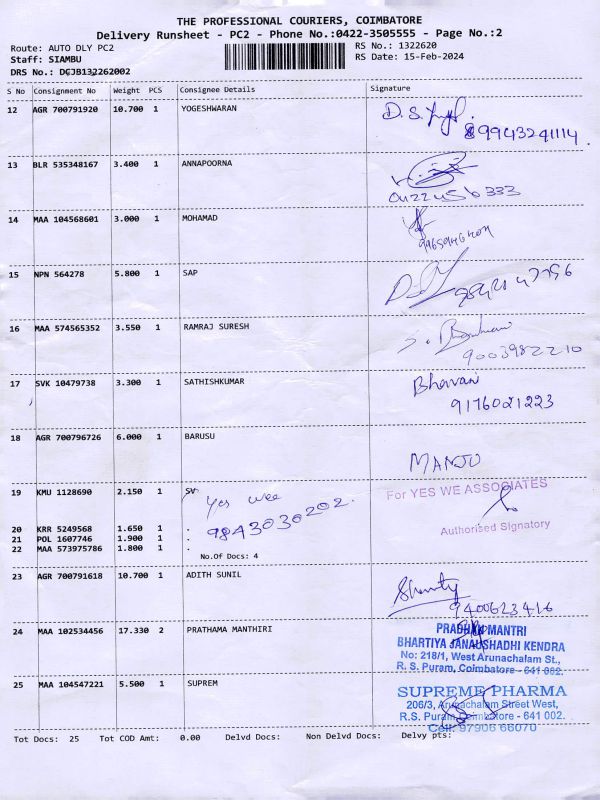 THE PROFESSIONAL COURIERS, COIMBATORE
Delivery Runsheet - PC2 - Phone No.:0422-3505555 - Page No.:2
Route: AUTO DLY PC2
RS No.: 1322620
Staff: SIAMBU
RS Date: 15-Feb-2024
DRS No.: DCJB132262002
S No Consignment No Weight PCS Consignee Details Signature
12 AGR 700791920 10.700 1 YOGESHWARAN
9943241114
13 BLR 535348167 3.400 1 ANNAPOORNA
14 MAA 104568601 3.000 1 MOHAMAD
15 NPN 564278 5.800 1 SAP
16 MAA 574565352 3.550 1 RAMRAJ SURESH
9003982210
17 SVK 10479738 3.300 1 SATHISHKUMAR Bhavani
9176021223
18 AGR 700796726 6.000 1 BARUSU
MANJU
19 KMU 1128690 2.150 1 SV. Yes wee For YES WE ASSOCIATES
9843030202.
20 KRR 5249568 1.650 1 . Authorised Signatory
21 POL 1607746 1.900 1 .
22 MAA 573975786 1.800 1 .
No.Of Docs: 4
23 AGR 700791618 10.700 1 ADITH SUNIL
9400623416
24 MAA 102534456 17.330 2 PRATHAMA MANTHIRI PRADHAN MANTRI
BHARTIYA JANAUSHADHI KENDRA
No: 218/1, West Arunachalam St.,
R. S. Puram, Coimbatore - 641 002.
25 MAA 104547221 5.500 1 SUPREM SUPREME PHARMA
206/3, Arunachalam Street West,
R.S. Puram, Coimbatore - 641 002.
Cell: 97906 66070
Tot Docs: 25 Tot COD Amt: 0.00 Delvd Docs: Non Delvd Docs: Delvy pts: